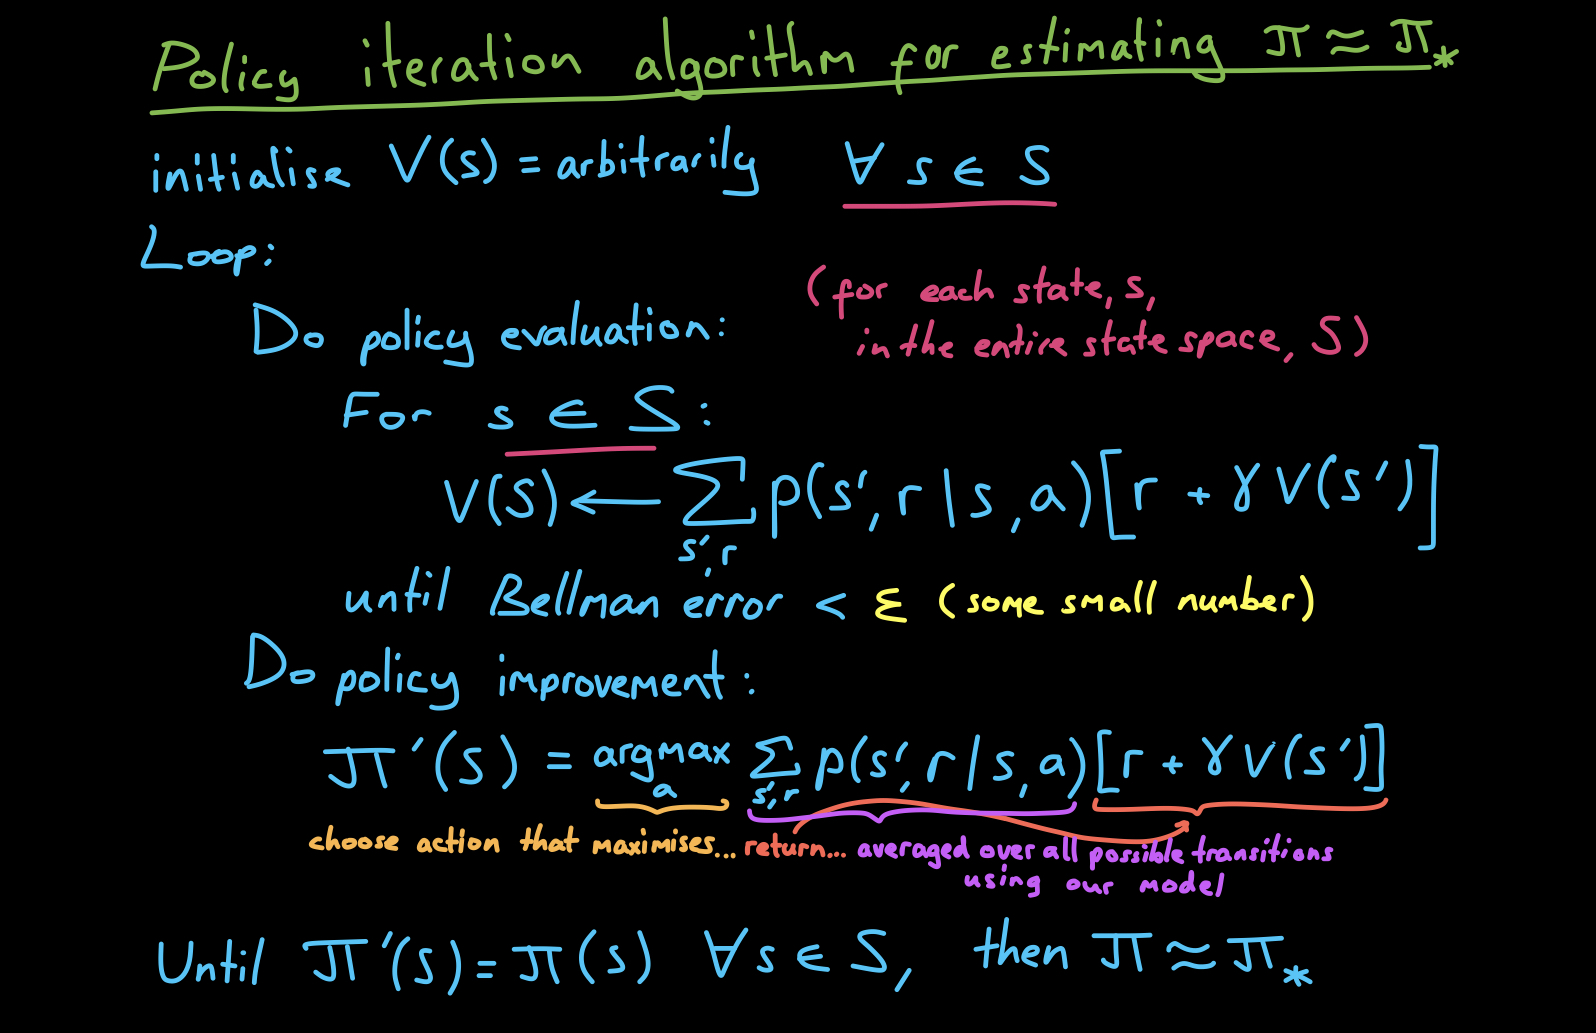 Policy iteration algorithm for estimating π ≈ π*
initialise V(s) = arbitrarily ∀ s ∈ S
Loop:
(for each state, s,
in the entire state space, S)
Do policy evaluation:
For s ∈ S:
V(S) ← Σ p(s', r | s, a) [r + γ V(s')]
s', r
until Bellman error < ε (some small number)
Do policy improvement:
π'(s) = argmax Σ p(s', r | s, a) [r + γ V(s')]
a s', r
choose action that maximises... return... averaged over all possible transitions
using our model
Until π'(s) = π(s) ∀ s ∈ S, then π ≈ π*